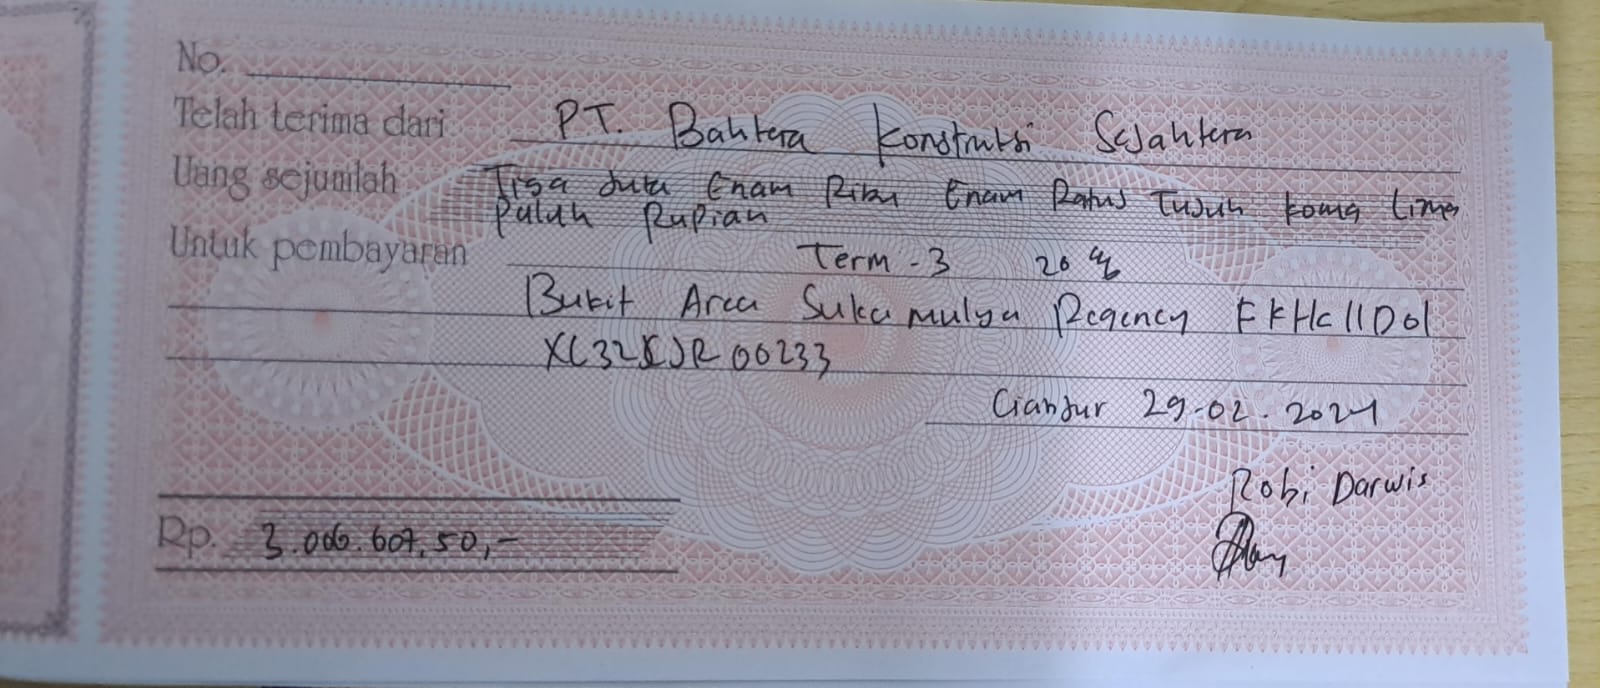 No.
Telah terima dari PT. Bahtera Konstruksi Sejahtera
Uang sejumlah Tiga Juta Enam Ribu Enam Ratus Tujuh koma lima
puluh Rupiah
Untuk pembayaran Term - 3 20 %
Bukit Area Sukamulya Regency FKHC11D01
XL32 CJR 00233
Cianjur 29-02-2024
Robi Darwis
Rp. 3.006.607,50,-